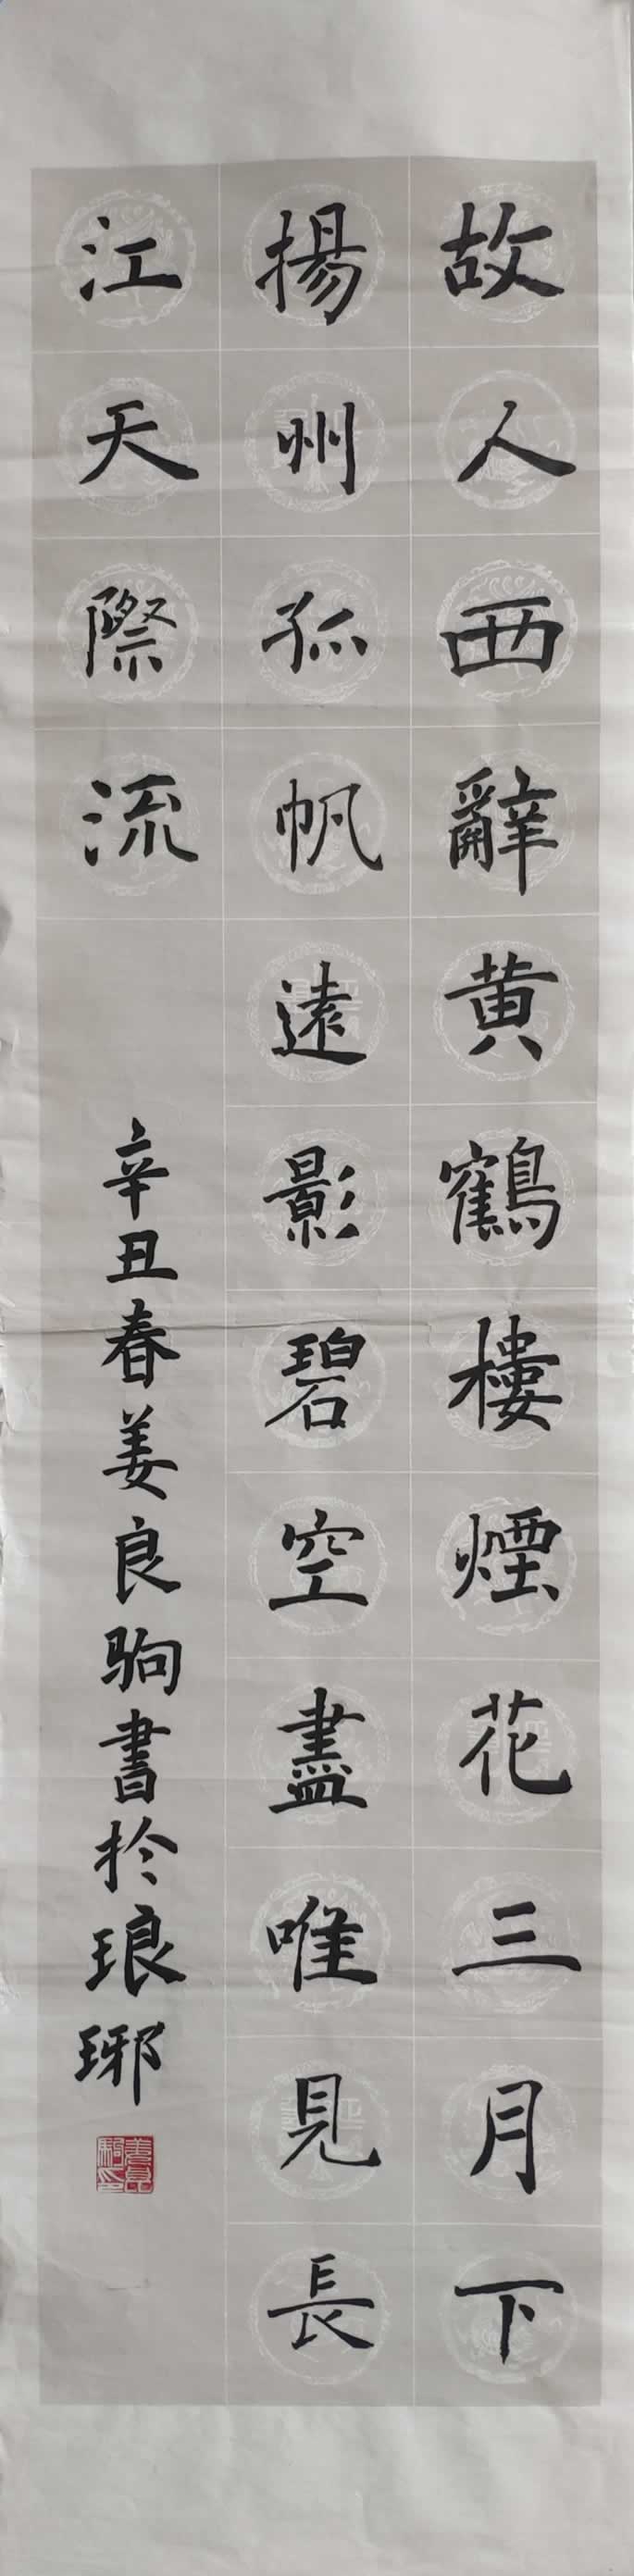 故人西辭黄鶴樓煙花三月下
揚州孤帆遠影碧空盡唯見長
江天際流
辛丑春姜良驹書於琅琊